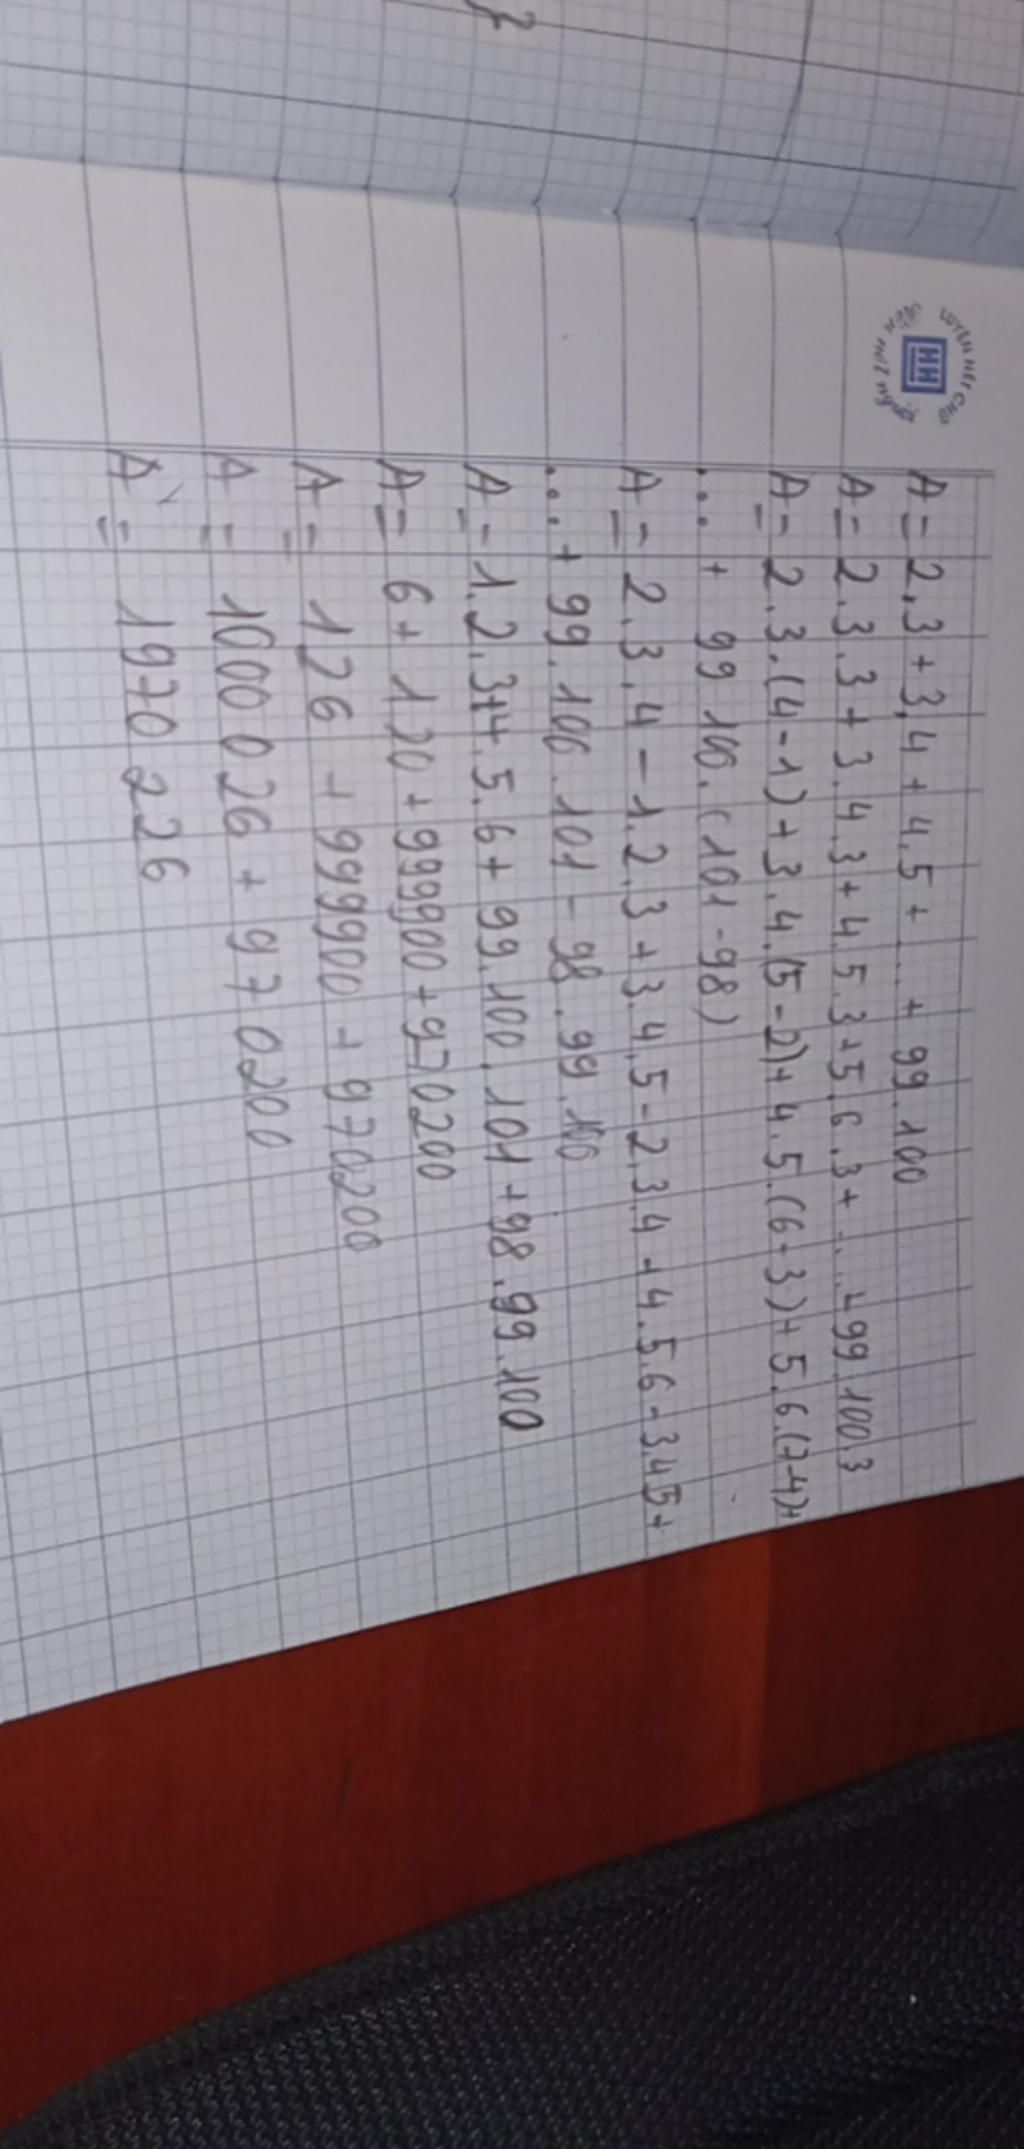 LUYỆN NÉT CHỮ
HH
RÈN NẾT NGƯỜI
A = 2.3 + 3.4 + 4.5 + ... + 99.100
A = 2.3.3 + 3.4.3 + 4.5.3 + 5.6.3 + ... + 99.100.3
A = 2.3.(4-1) + 3.4.(5-2) + 4.5.(6-3) + 5.6.(7-4) +
... + 99.100.(101-98)
A = 2.3.4 - 1.2.3 + 3.4.5 - 2.3.4 + 4.5.6 - 3.4.5 +
... + 99.100.101 - 98.99.100
A = 1.2.3 + 4.5.6 + 99.100.101 + 98.99.100
A = 6 + 120 + 999900 + 970200
A = 126 + 999900 + 970200
A = 1000026 + 970200
A = 1970226